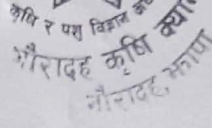 कृषि र पशु विज्ञान
गौरादह कृषि क्या
गौरादह, झापा